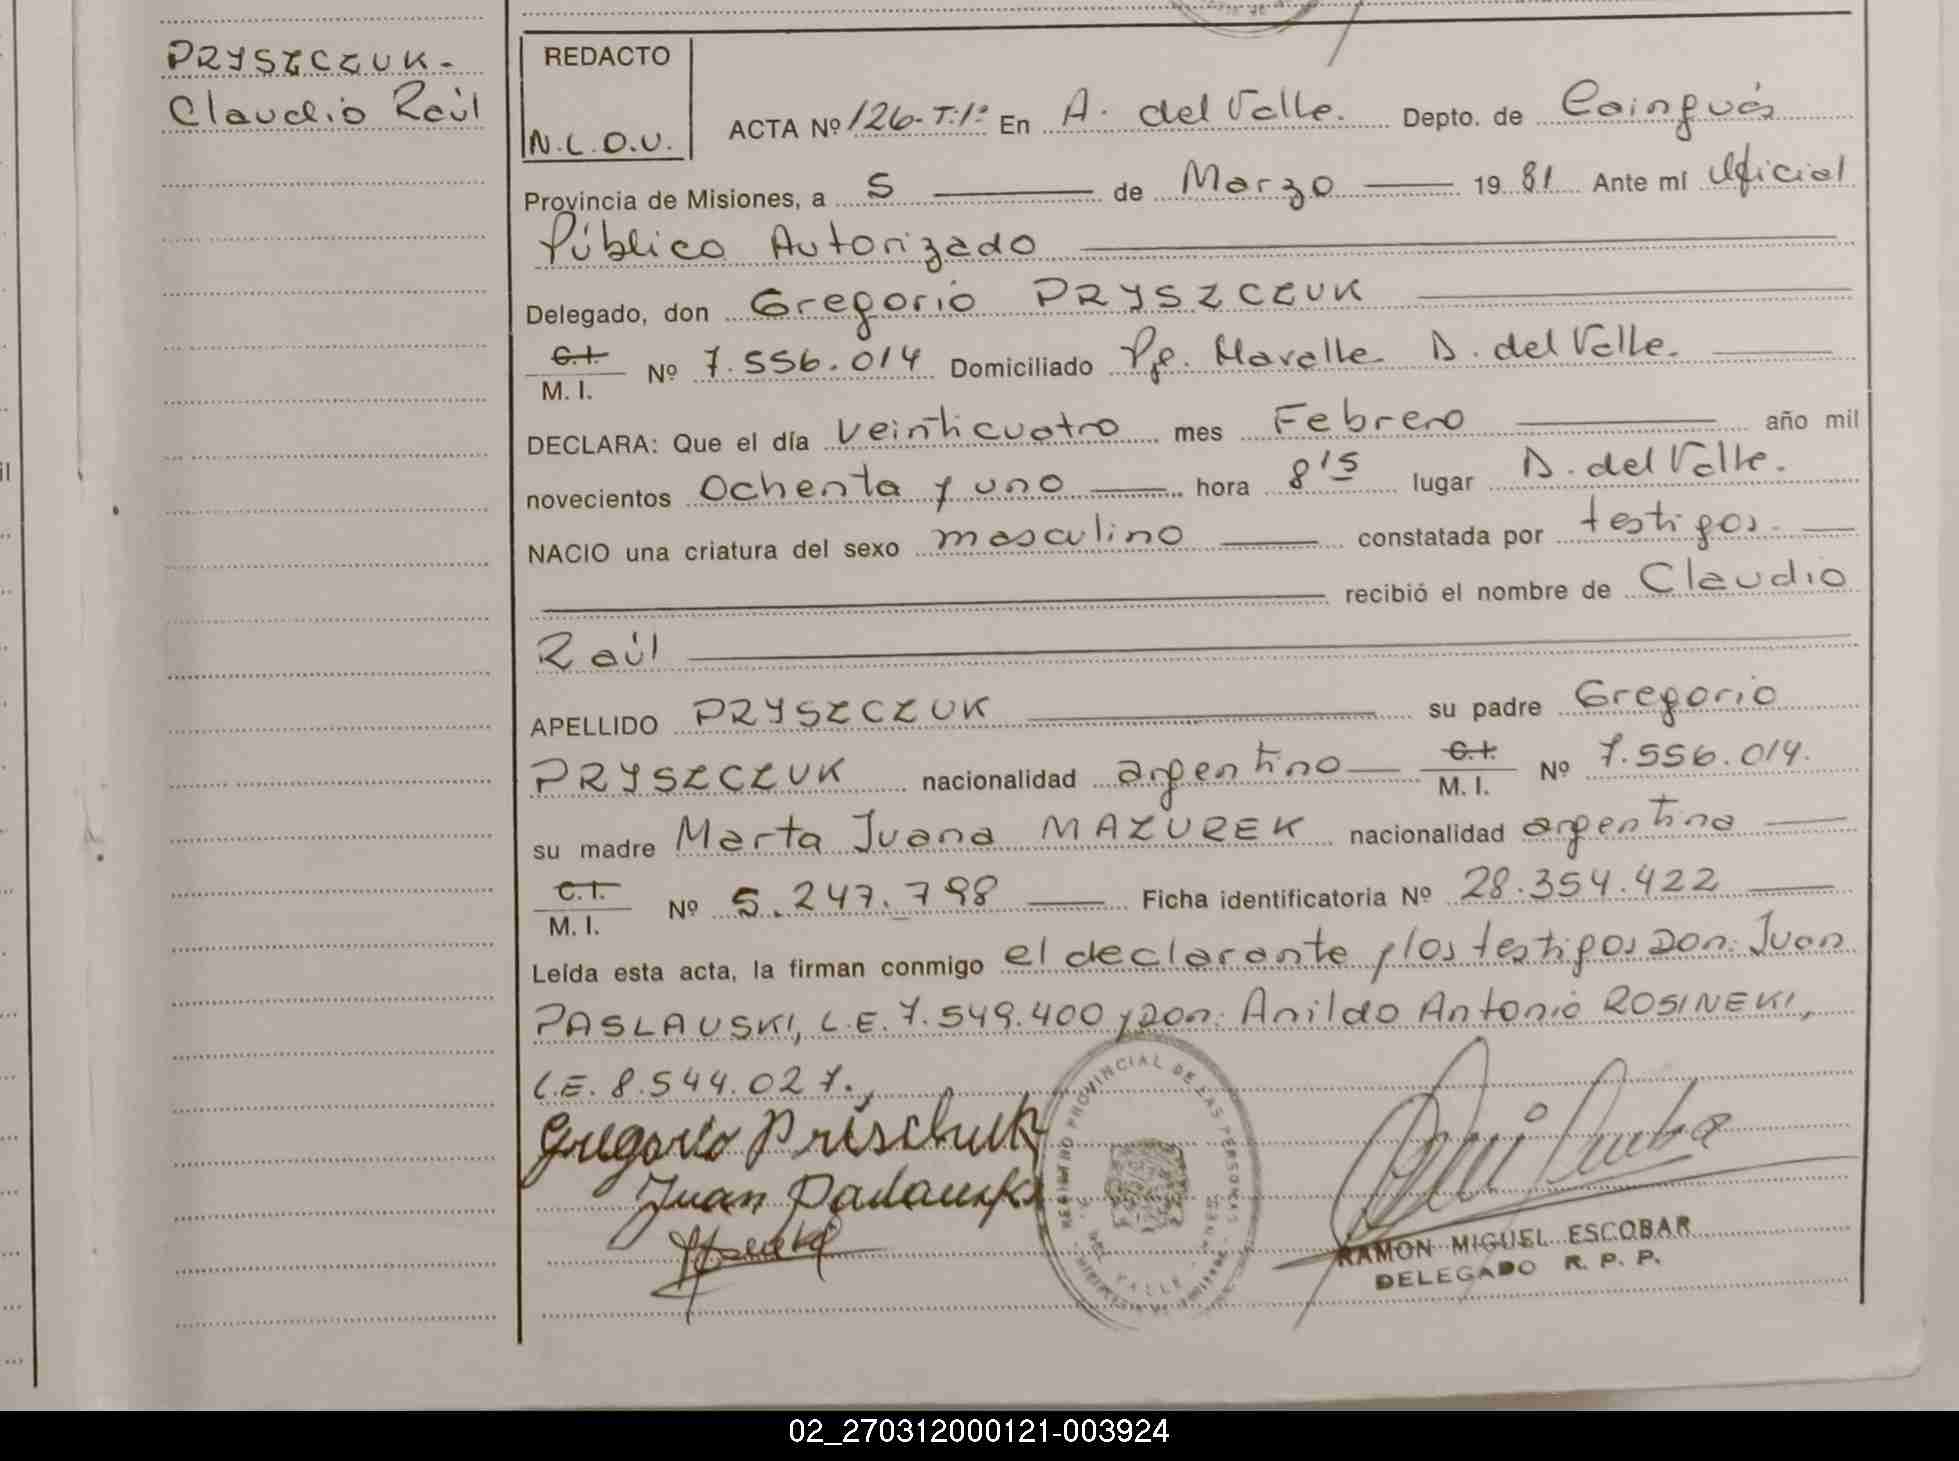 PRYSZCZUK.
Claudio Raúl
REDACTO
N.L.O.U.
ACTA Nº 126-T.1º En A. del Valle. Depto. de Cainguás
Provincia de Misiones, a 5 de Marzo 19 81 Ante mí Oficial
Público Autorizado
Delegado, don Gregorio PRYSZCZUK
C.I. M. I. Nº 7.556.014 Domiciliado Pje. A. del Valle.
DECLARA: Que el día veinticuatro mes Febrero año mil
novecientos Ochenta y uno hora 8'15 lugar A. del Valle.
NACIO una criatura del sexo masculino constatada por testigos.
recibió el nombre de Claudio
Raúl
APELLIDO PRYSZCZUK su padre Gregorio
PRYSZCZUK nacionalidad argentino C.I. M. I. Nº 7.556.014.
su madre Marta Juana MAZUREK nacionalidad argentina
C.I. M. I. Nº 5.247.798 Ficha identificatoria Nº 28.354.422
Leída esta acta, la firman conmigo el declarante y los testigos Don: Juan
PASLAUSKI, L.E. 7.549.400 y Don: Anildo Antonio ROSINEKI,
L.E. 8.544.027.
Gregorio Prischuk
Juan
REGISTRO PROVINCIAL DE LAS PERSONAS
DEL VALLE
RAMON MIGUEL ESCOBAR
DELEGADO R. P. P.
02_270312000121-003924